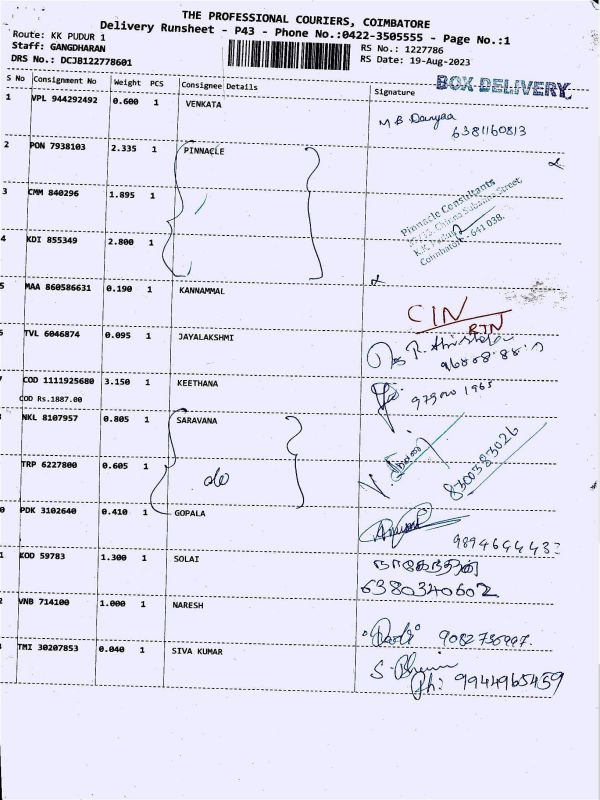 THE PROFESSIONAL COURIERS, COIMBATORE
Delivery Runsheet - P43 - Phone No.:0422-3505555 - Page No.:1
Route: KK PUDUR 1
RS No.: 1227786
Staff: GANGDHARAN
RS Date: 19-Aug-2023
DRS No.: DCJB122778601
BOX DELIVERY
S No Consignment No Weight PCS Consignee Details Signature
1 VPL 944292492 0.600 1 VENKATA
6381160813
2 PON 7938103 2.335 1 PINNACLE
3 CMM 840296 1.895 1
Pinnacle Consultants
Street
K.K. Pudur
Coimbatore - 641 038.
4 KDI 855349 2.800 1
5 MAA 860586631 0.190 1 KANNAMMAL
CIN
RTN
TVL 6046874 0.095 1 JAYALAKSHMI
COD 1111925680 3.150 1 KEETHANA
COD Rs.1887.00
NKL 8107957 0.805 1 SARAVANA
8300383026
TRP 6227800 0.605 1
do
0 PDK 3102640 0.410 1 GOPALA
1 KOD 59783 1.300 1 SOLAI
6380340602
2 VNB 714100 1.000 1 NARESH
TMI 30207853 0.040 1 SIVA KUMAR
Ph: 9944965459